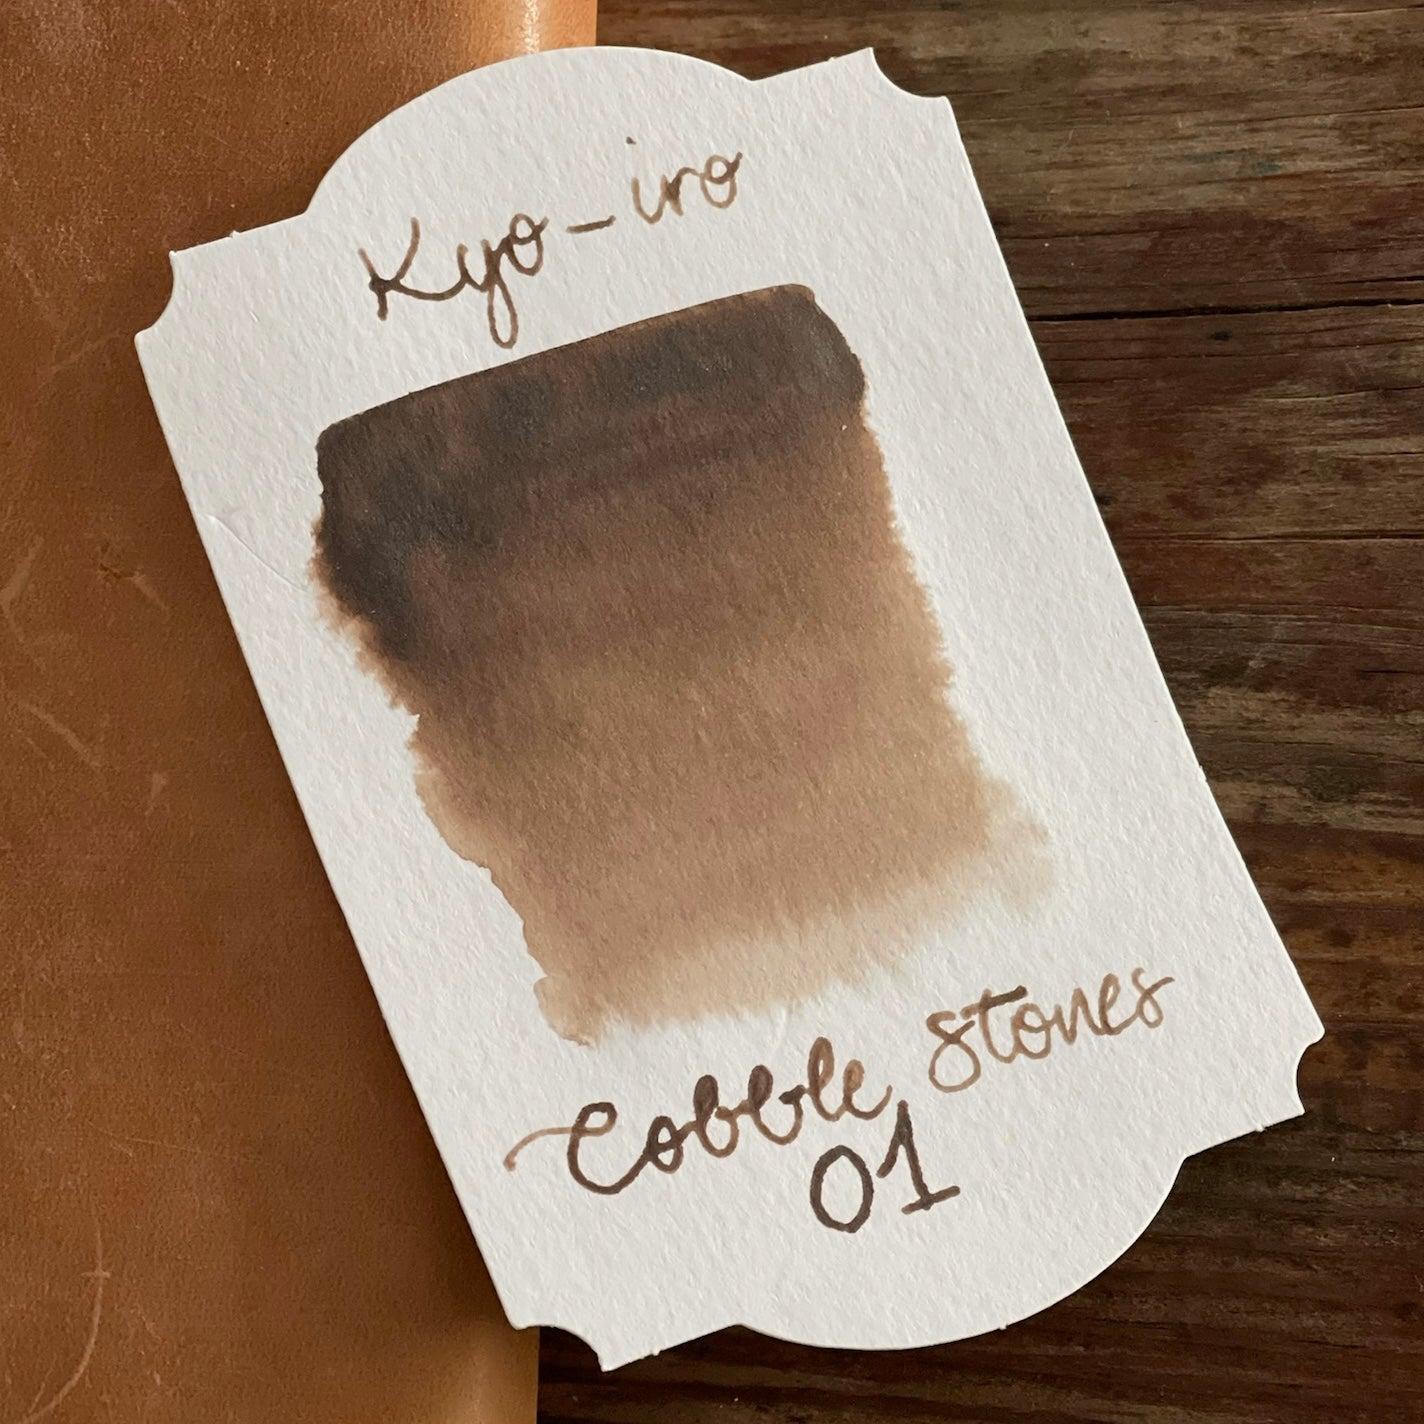 Kyo-iro
Cobble stones
01